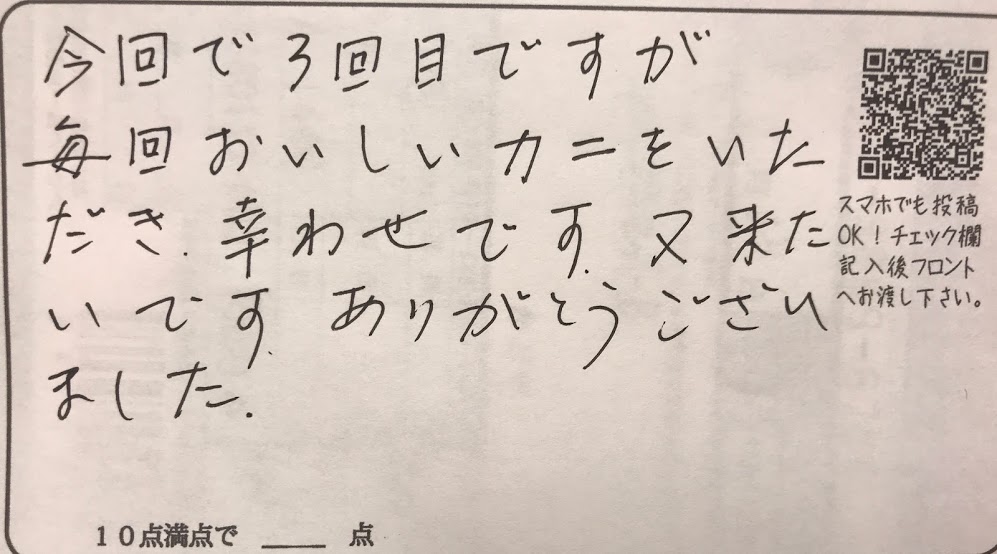 今回で3回目ですが
毎回おいしいカニをいた
だき.幸わせです.又来た
いです.ありがとうござい
ました.
スマホでも投稿
OK!チェック欄
記入後フロント
へお渡し下さい。
10点満点で ____ 点